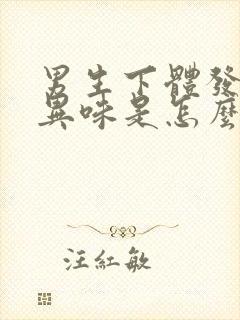 男生下體發
異味是怎麼
汪紅敏